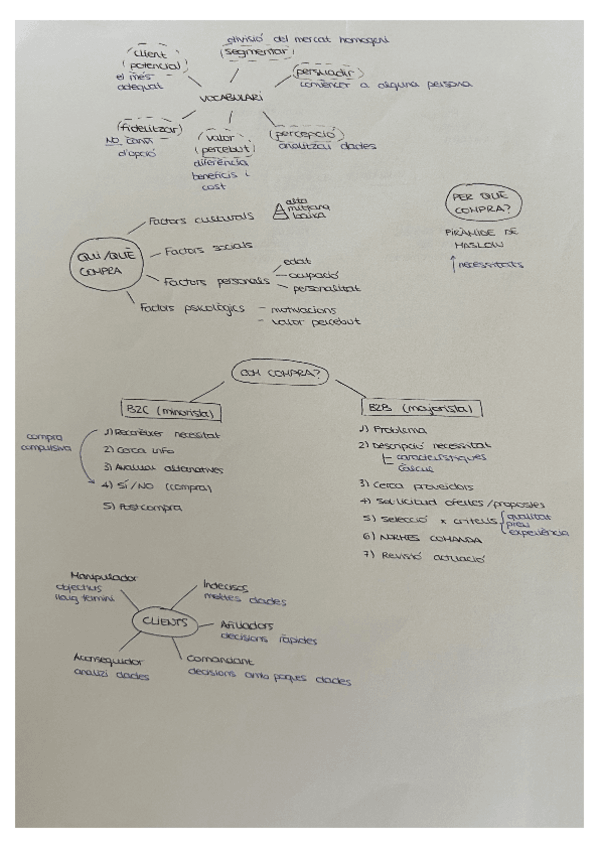 envisió del mercat homogeni
client
potencial
el més
adequat
segmentar
persuadir
convèncer a alguna persona
VOCABULARI
fidelitzar
NO canvi
d'opció
valor
percebut
diferència
beneficis i
cost
percepció
analitzai dades
QUI/QUÈ
COMPRA
Factors culturals
alta
mitjana
baixa
Factors socials
Factors personals
edat
ocupació
personalitat
Factors psicològics
- motivacions
- valor percebut
PER QUÈ
COMPRA?
PIRÀMIDE DE
MASLOW
↑ necessitats
COM COMPRA?
B2C (minorista)
compra
compulsiva
1) Reconèixer necessitat
2) Cerca info
3) Avaluar alternatives
4) SÍ/NO (compra)
5) Postcompra
B2B (majorista)
1) Problema
2) Descripció necessitat
característiques
càlcul
3) Cerca proveïdors
4) Sol·licitud ofertes/propostes
5) Selecció x criteris
qualitat
preu
experiència
6) NORMES COMANDA
7) Revisió actuació
CLIENTS
Manipulador
objectius
llarg termini
Indecisos
moltes dades
decisions ràpides
Aconseguidor
analitzi dades
Comandant
decisions amb poques dades